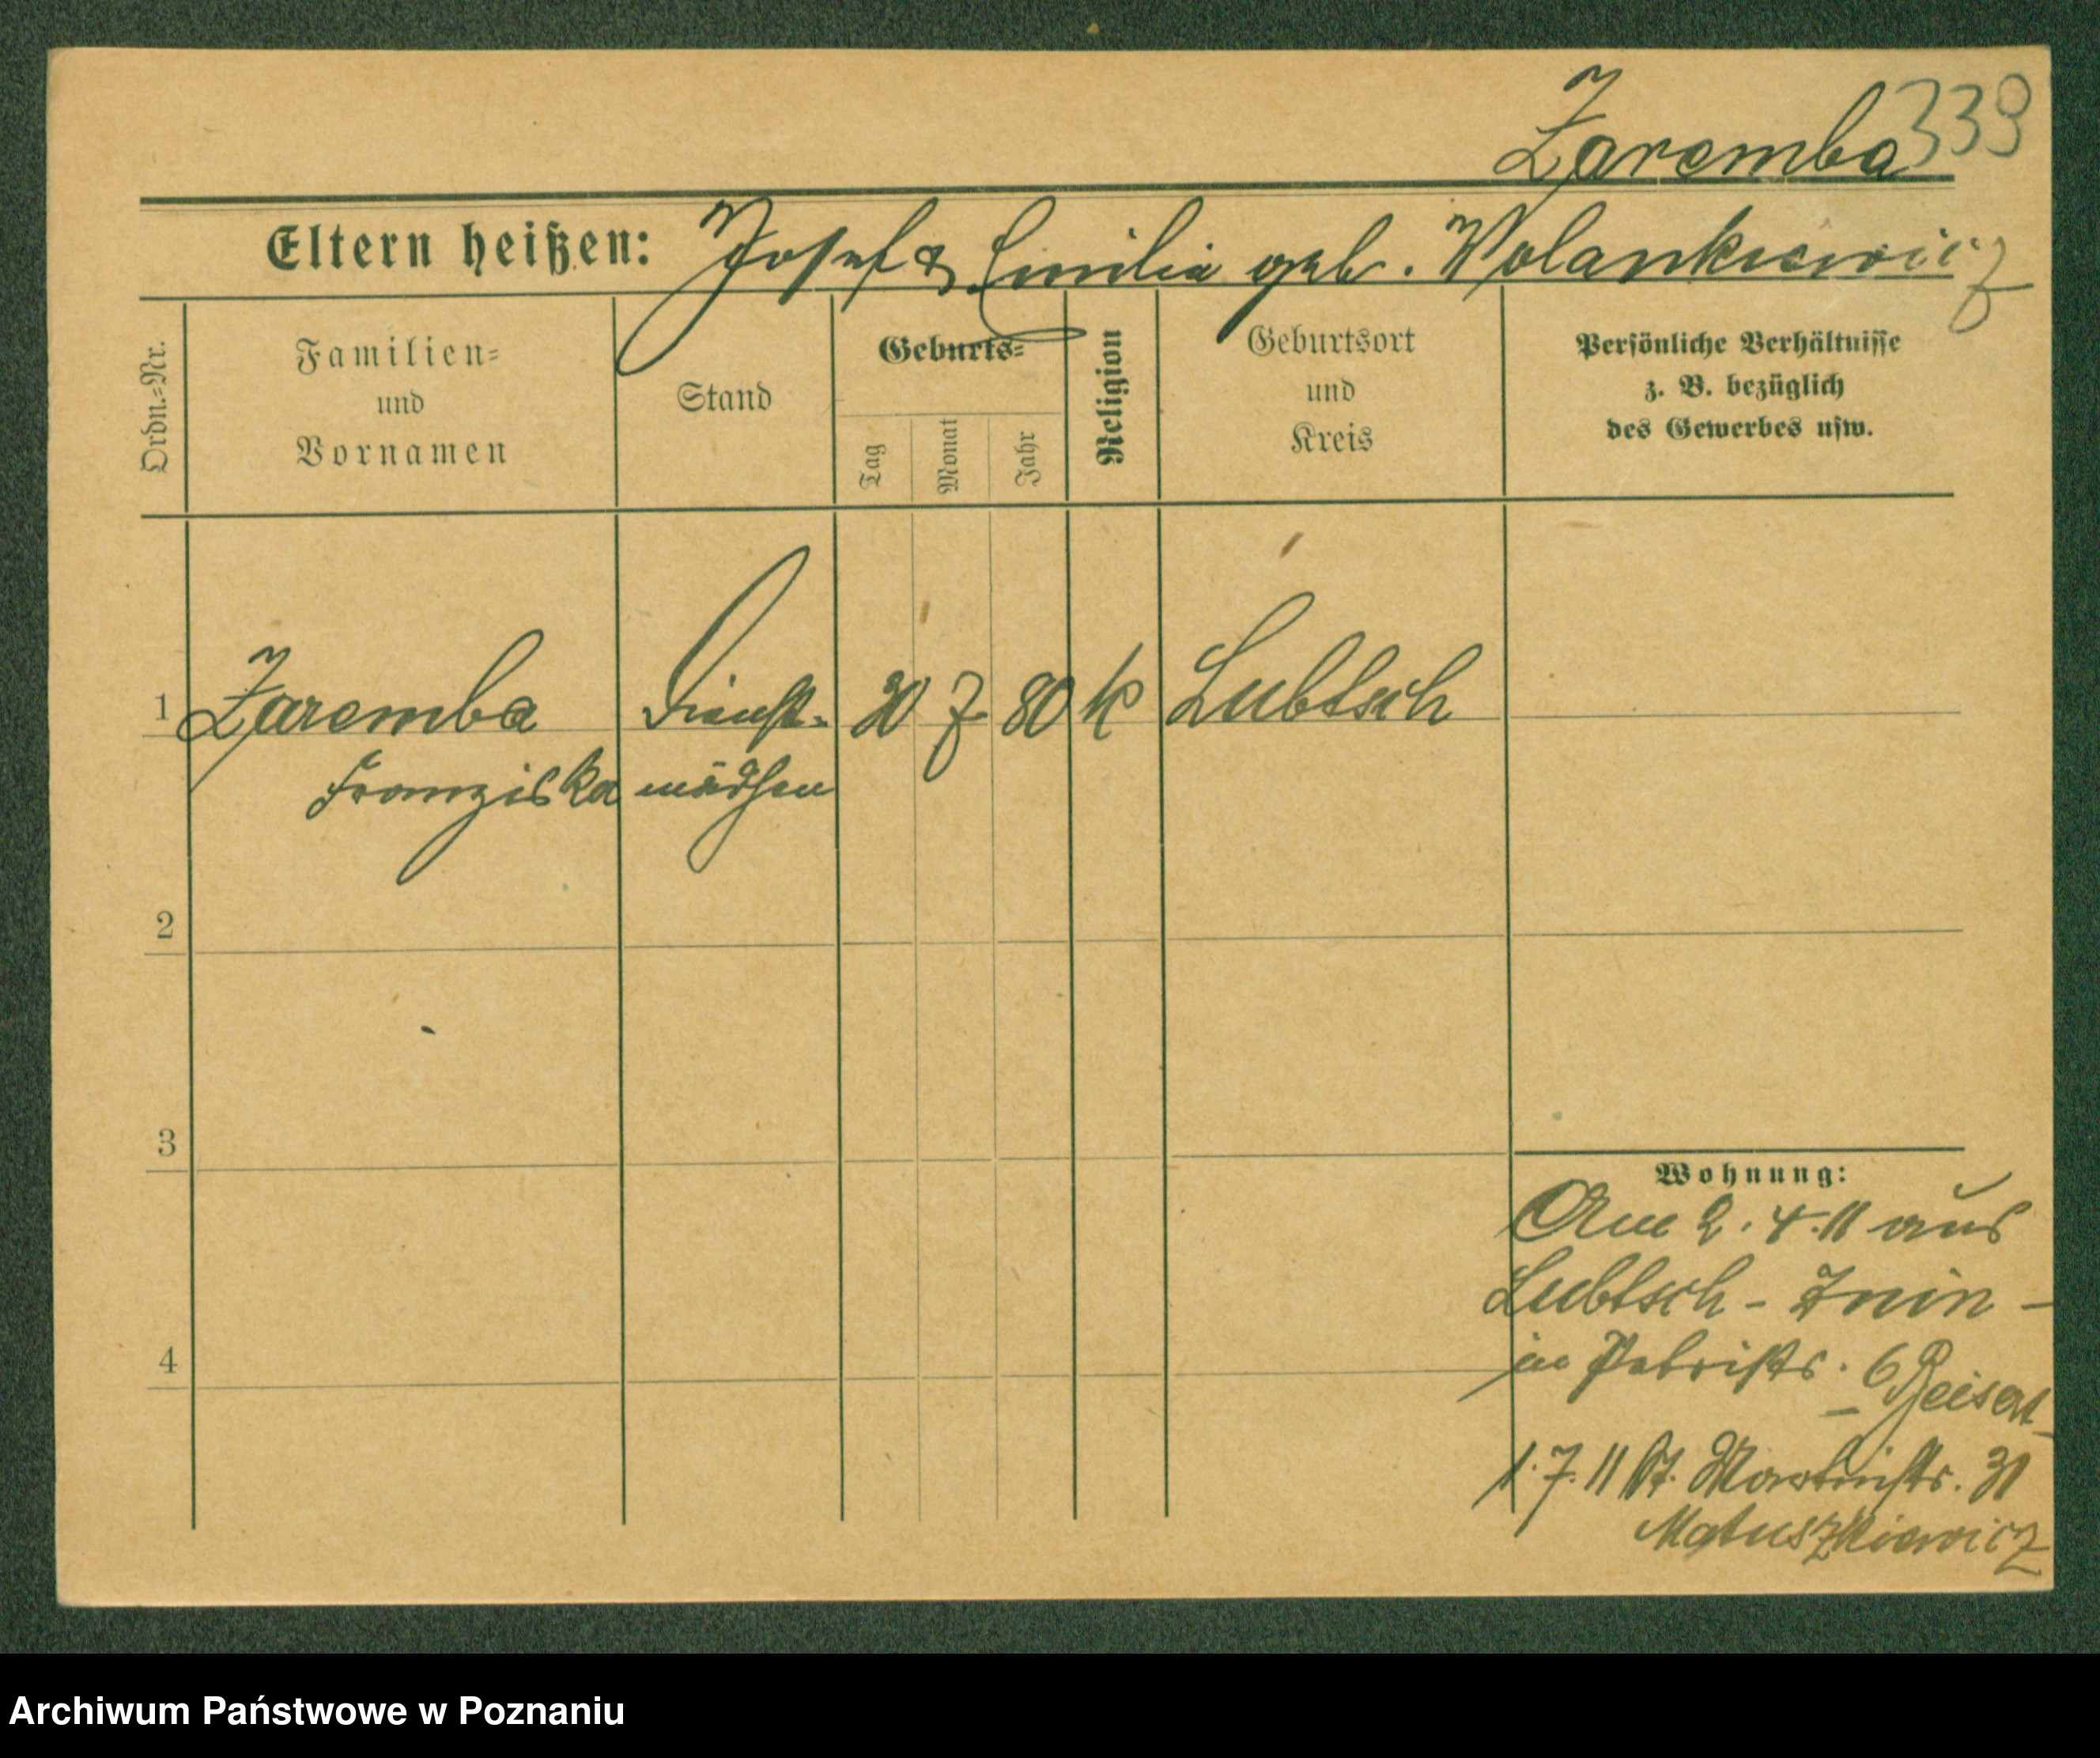 Zaremba 339
Eltern heißen: Josef & Emilia geb. Wolankiewicz
Ordn.=Nr.
Familien=
und
Vornamen
Stand
Geburts=
Tag
Monat
Jahr
Religion
Geburtsort
und
Kreis
Persönliche Verhältnisse
z. B. bezüglich
des Gewerbes usw.
1 Zaremba Dienst- 7 80 k Lubtsch
Franziska mädchen
2
3
4
Wohnung:
Am 2.4.11 aus
Lubtsch - Znin -
in 6
1.7.11 St. Martinstr. 31
Matuszkiewicz
Archiwum Państwowe w Poznaniu